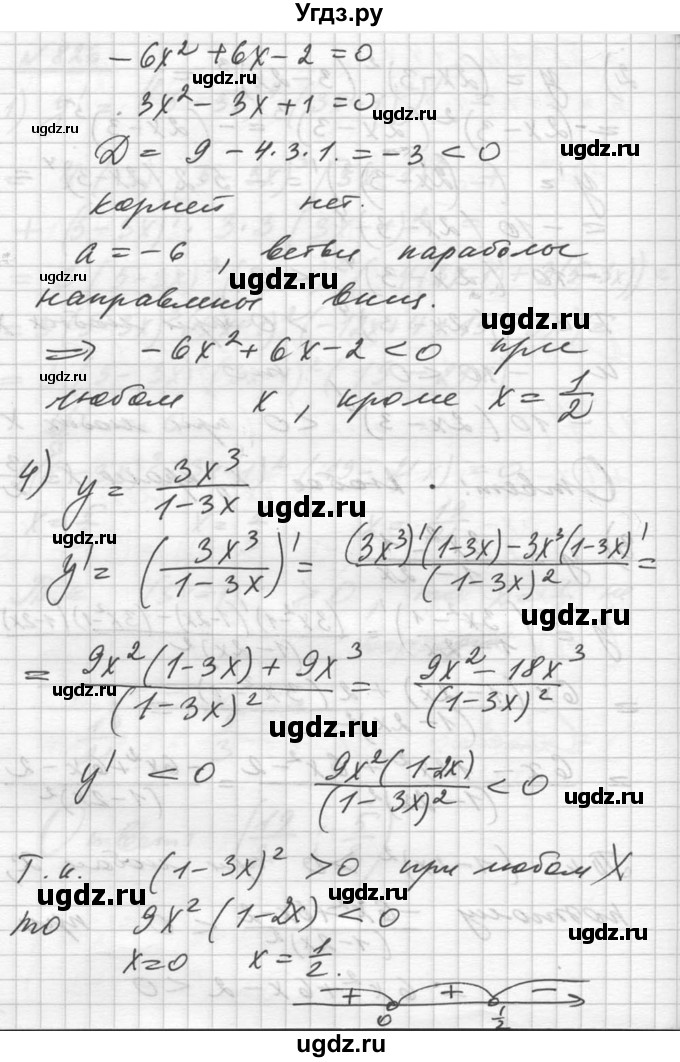 Угдз.ру
-6x² + 6x - 2 = 0
ugdz.ru
3x² - 3x + 1 = 0
ugdz.ru ugdz.ru
D = 9 - 4·3·1. = -3 < 0
ugdz.ru
корней нет.
ugdz.ru
a = -6, ветви параболы
ugdz.ru ugdz.ru
направлены вниз.
ugdz.ru
⇒ -6x² + 6x - 2 < 0 при
ugdz.ru
любом x, кроме x = 1/2
4) y = 3x³/(1-3x)
ugdz.ru ugdz.ru
y' = (3x³/(1-3x))' = ((3x³)'(1-3x) - 3x³(1-3x)')/(1-3x)² =
ugdz.ru
= (9x²(1-3x) + 9x³)/(1-3x)² = (9x² - 18x³)/(1-3x)²
ugdz.ru ugdz.ru
y' < 0 9x²(1-2x)/(1-3x)² < 0
ugdz.ru ugdz.ru
Т.к. (1-3x)² > 0 при любом X
ugdz.ru
то 9x²(1-2x) < 0
ugdz.ru
x=0 x = 1/2.
+ + -
0 1/2